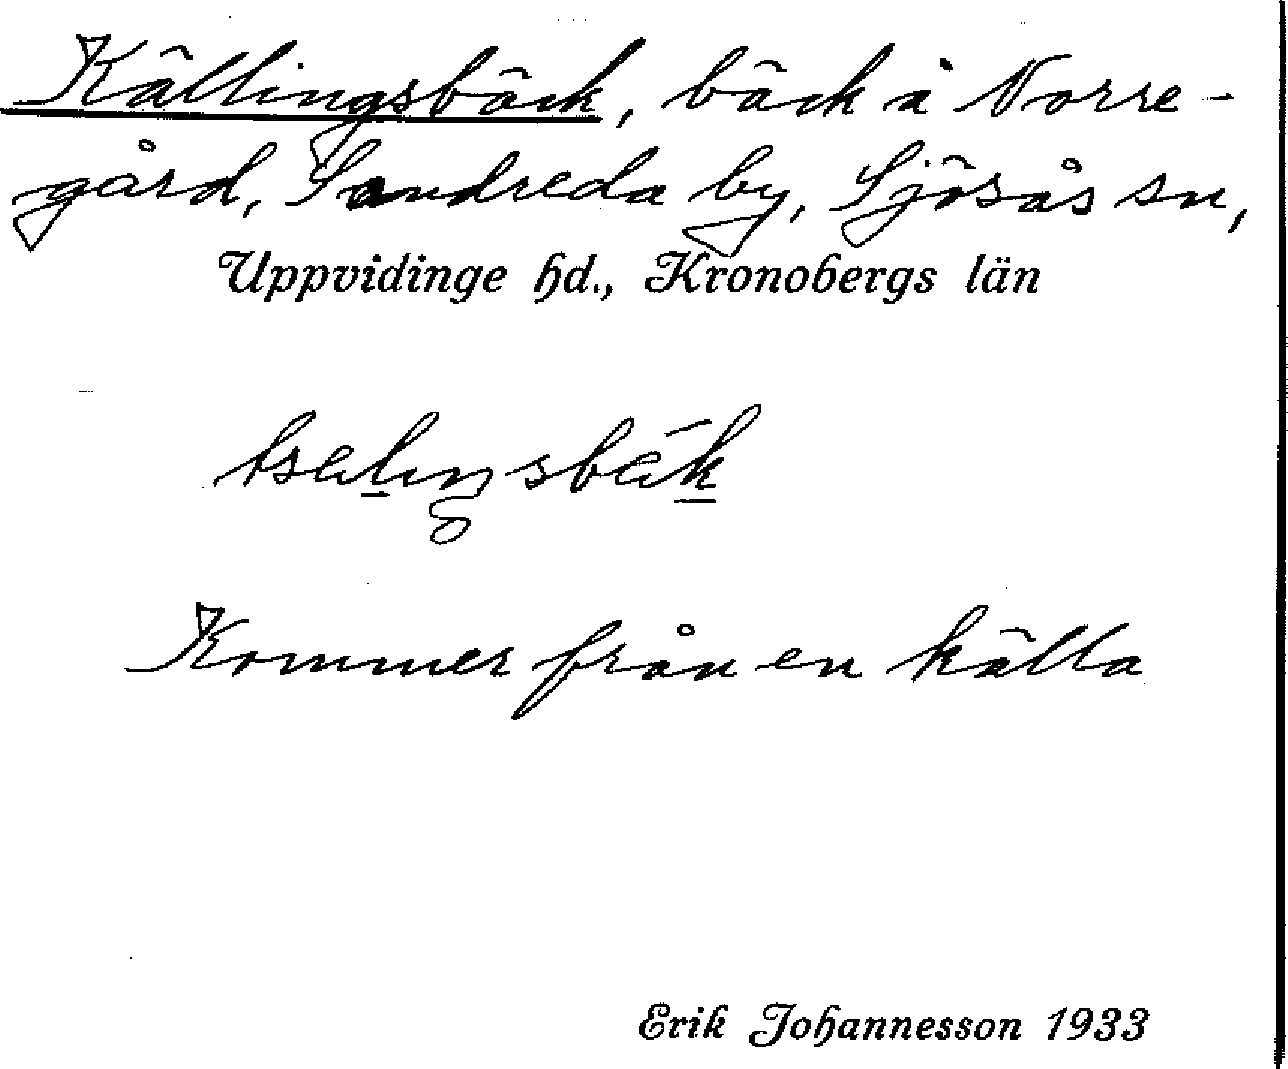 Källingsbäck, bäck å Norre-
gård, Sandreda by, Sjösås sn,
Uppvidinge hd., Kronobergs län
Kommer från en källa
Erik Johannesson 1933